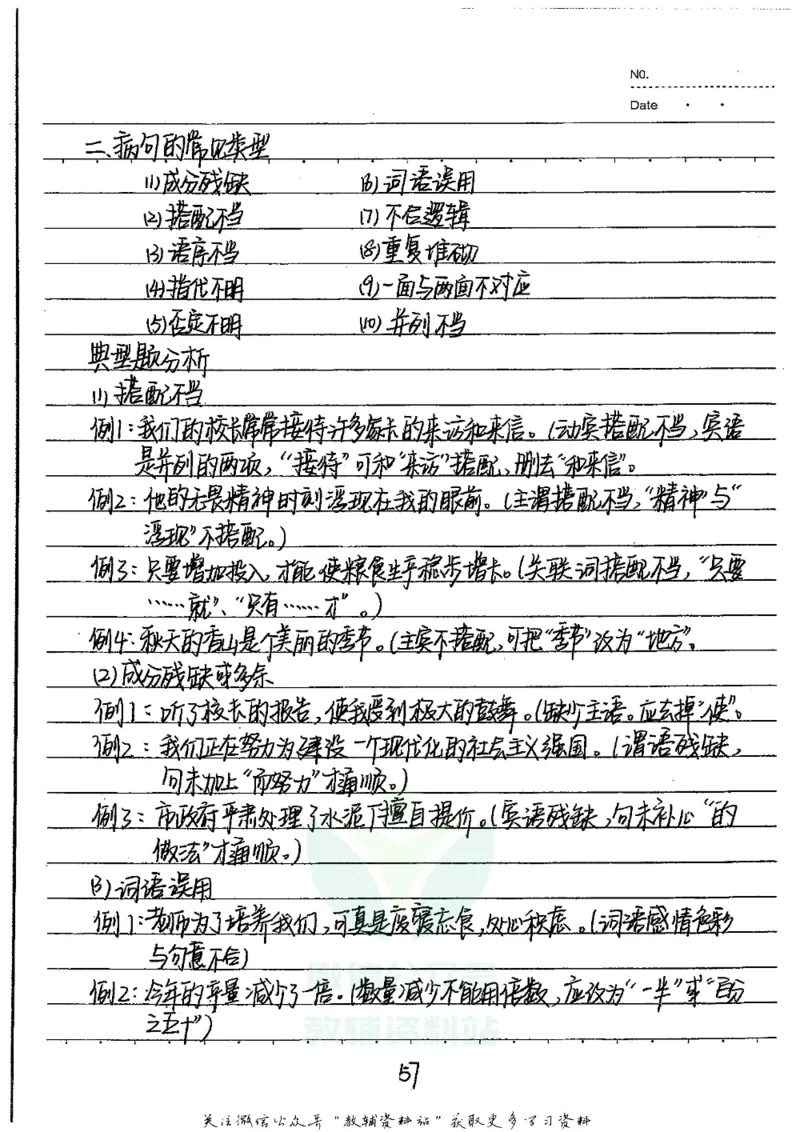 NO.
Date
二、病句的常见类型
(1)成分残缺 (6)词语误用
(2)搭配不当 (7)不合逻辑
(3)语序不当 (8)重复堆砌
(4)指代不明 (9)一面与两面不对应
(5)否定不明 (10)并列不当
典型题分析
(1)搭配不当
例1：我们的校长常常接待许多家长的来访和来信。(动宾搭配不当，宾语
是并列的两项，“接待”可和“来访”搭配，删去“和来信”。
例2：他的无畏精神时刻浮现在我的眼前。(主谓搭配不当，“精神”与“
浮现”不搭配。)
例3：只要增加投入，才能使粮食生产稳步增长。(关联词搭配不当，“只要
……就”、“只有……才”。)
例4：秋天的香山是个美丽的季节。(主宾不搭配，可把“季节”改为“地方”。
(2)成分残缺或多余
例1：听了校长的报告，使我受到极大的鼓舞。(缺少主语。应去掉“使”。
例2：我们正在努力为建设一个现代化的社会主义强国。(谓语残缺，
句末加上“而努力”才通顺。)
例3：市政府严肃处理了水泥厂擅自提价。(宾语残缺，句末补心“的
做法”才通顺。)
(3)词语误用
例1：老师为了培养我们，可真是废寝忘食，处心积虑。(词语感情色彩
与句意不合)
例2：今年的产量减少了一倍。(数量减少不能用倍数，应改为“一半”或“百分
之五十”)
57
微信公众号
教辅资料站
关注微信公众号“教辅资料站”获取更多学习资料